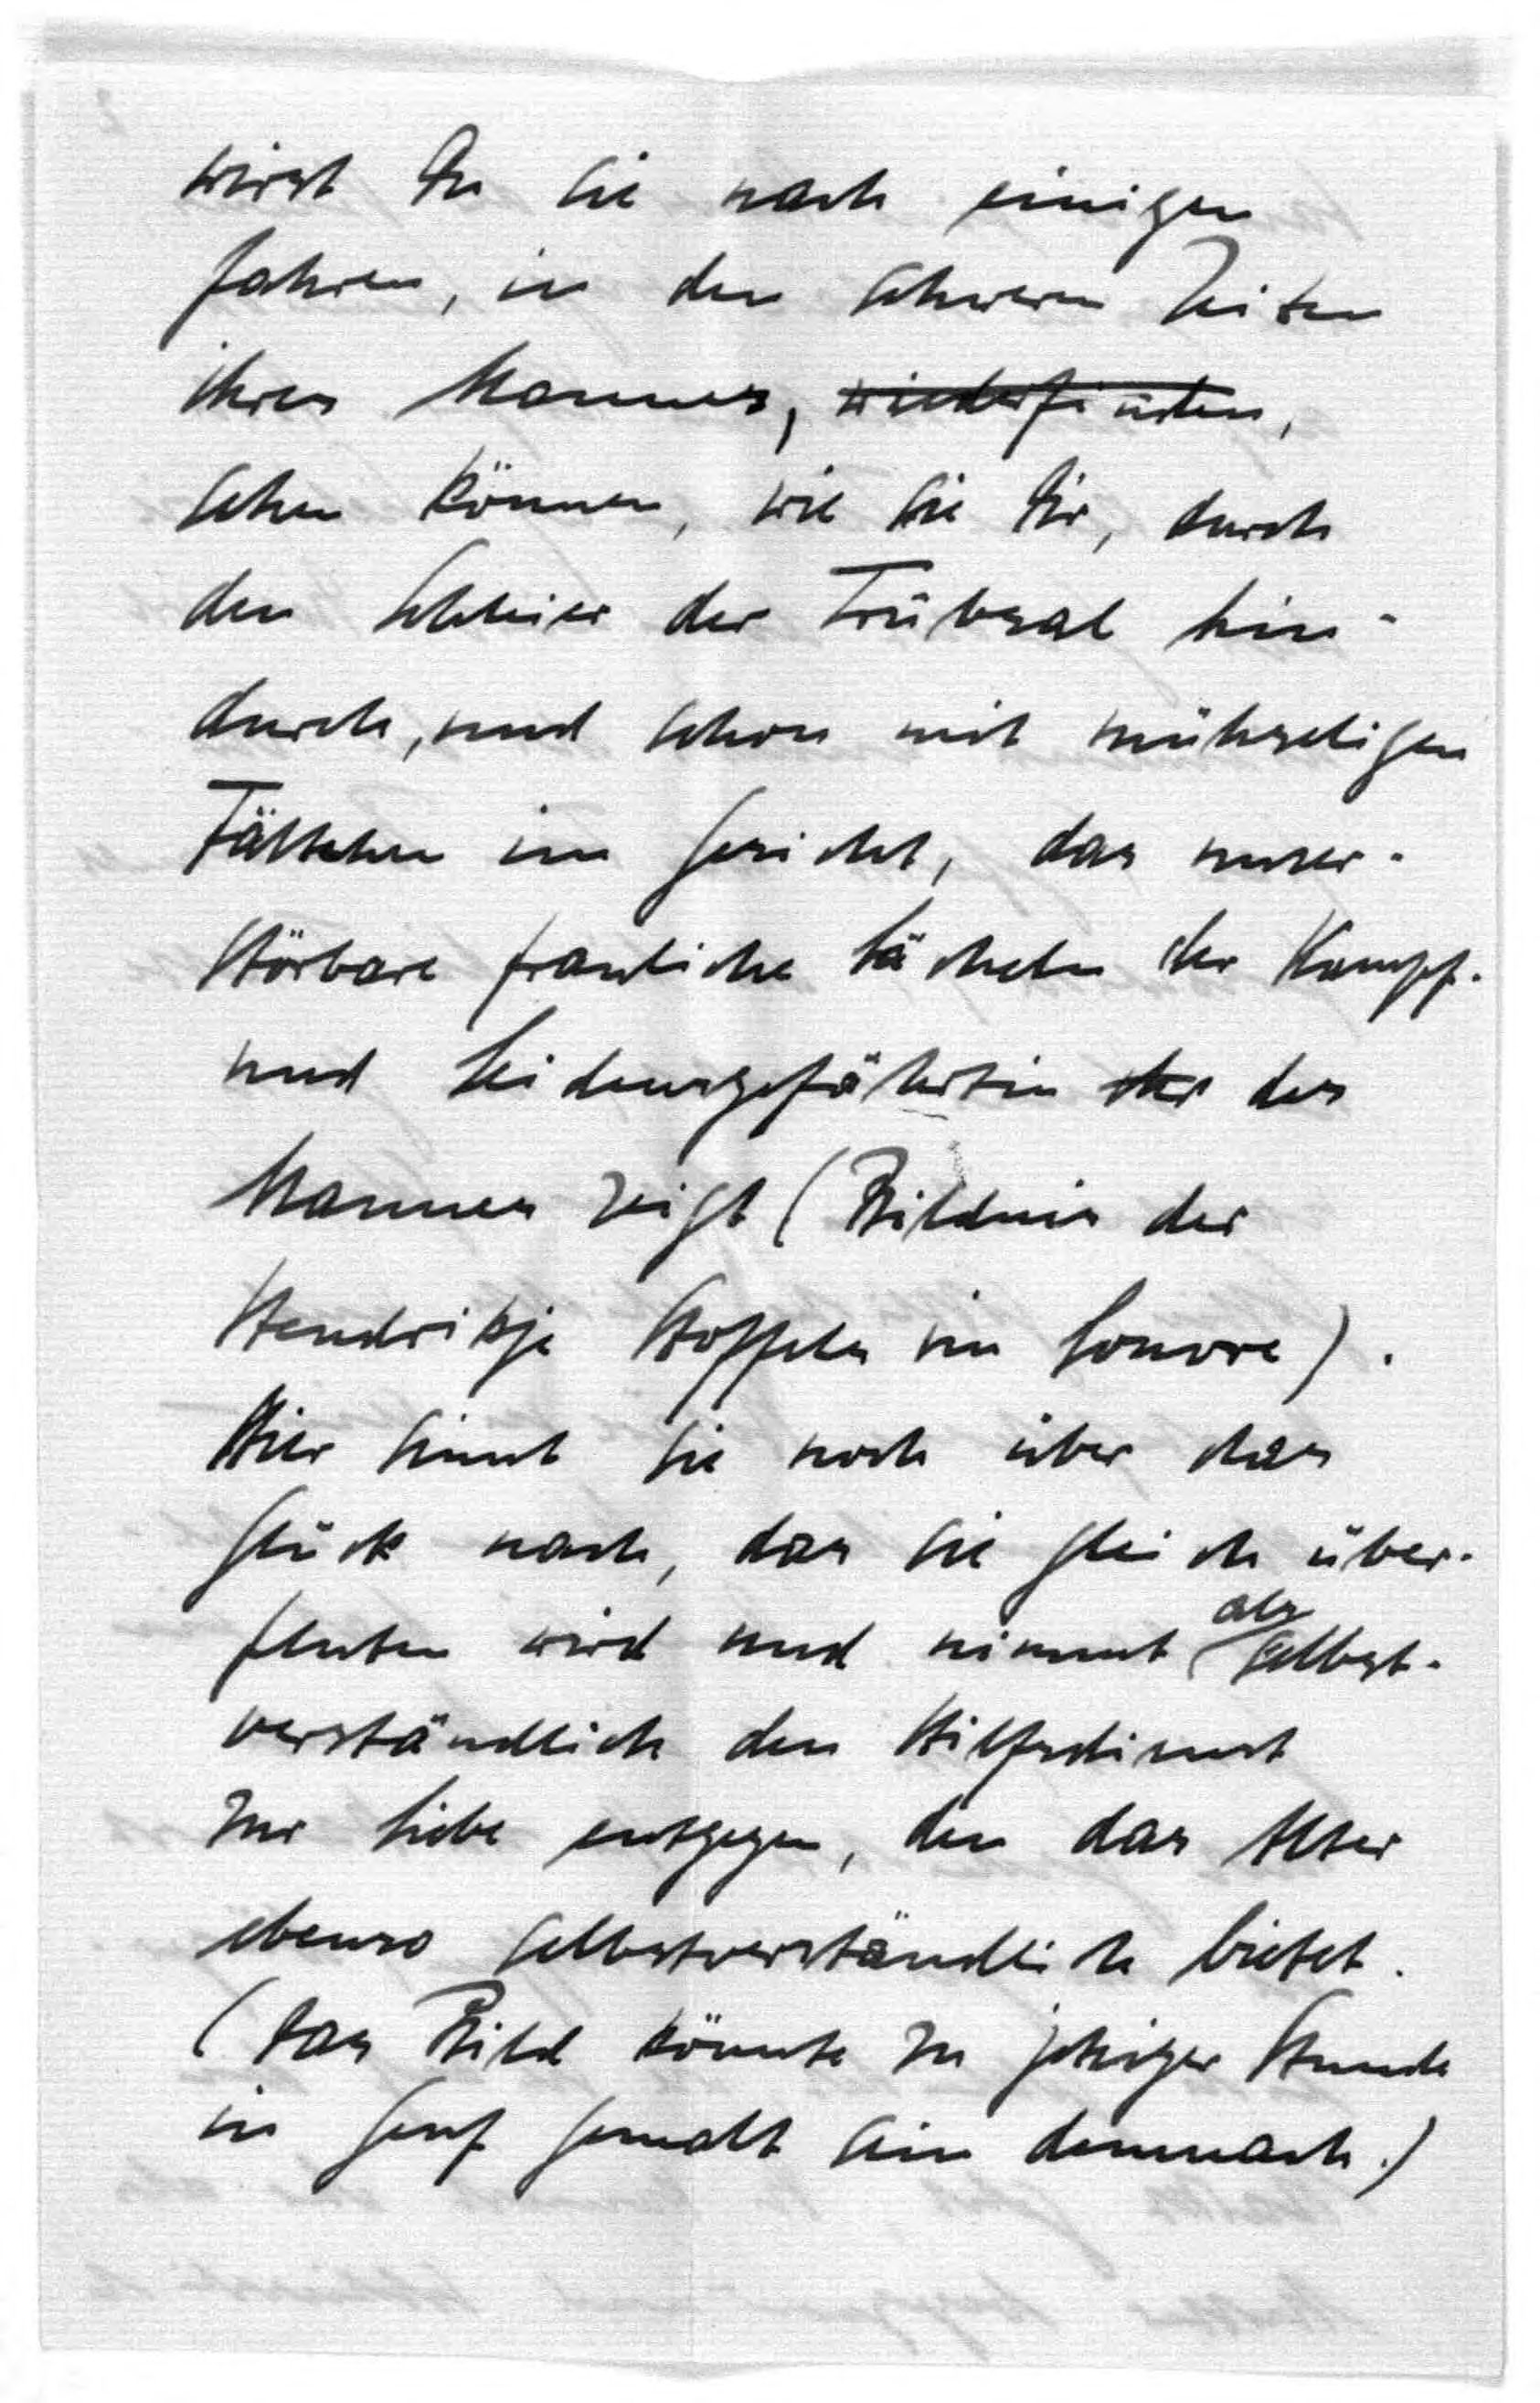 wirst Du sie nach einigen
Jahren, in den schweren Zeiten
ihres Mannes, wiederfinden,
sehen können, wie sie Dir, durch
den Schleier der Trübsal hin-
durch, und schon mit mühseligen
Fältchen im Gesicht, das unzer-
störbare frauliche Lächeln der Kampf-
und Leidensgefährtin der des
Mannes zeigt (Bildnis der
Hendrikje Stoffels im Louvre).
Hier sinnt sie noch über das
Glück nach, das sie gleich über-
fluten wird und nimmt als selbst-
verständlich den Hilfsdienst
zur Liebe entgegen, den das Alter
ebenso selbstverständlich bietet.
(Das Bild könnte zu jetziger Stunde
in Genf gemalt sein demnach.)